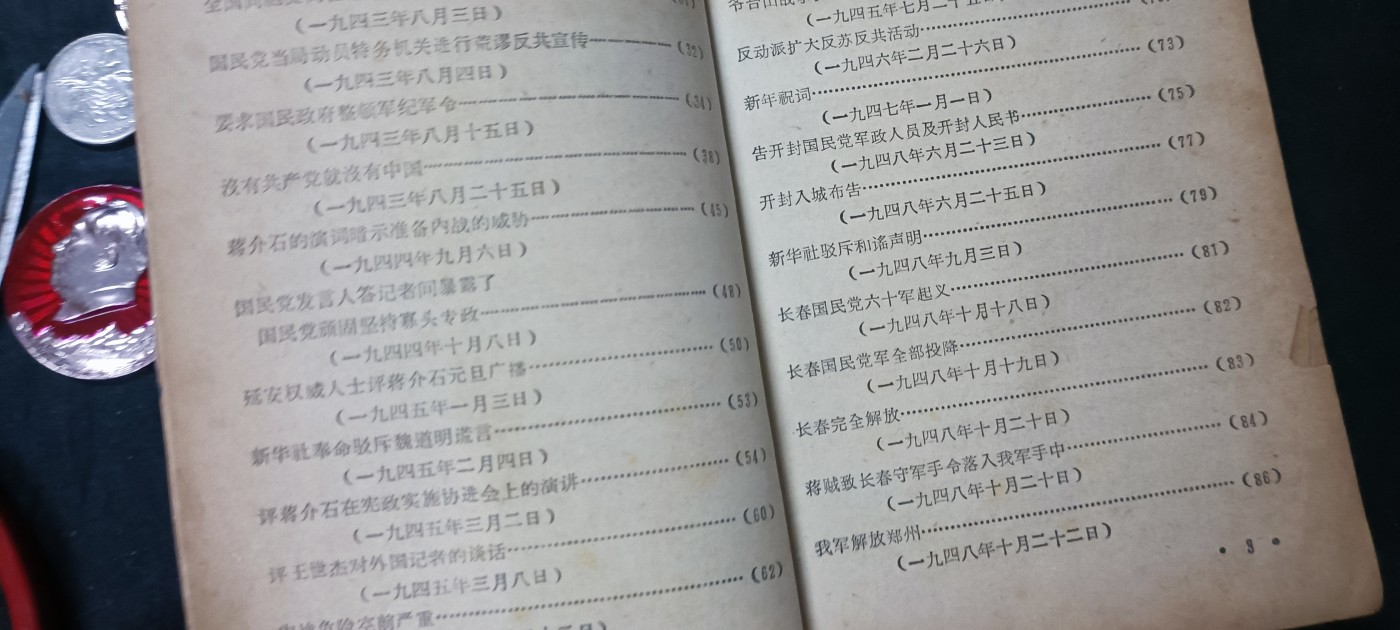 (一九四三年八月三日)
国民党当局动员特务机关进行荒谬反共宣传……(32)
(一九四三年八月四日)
要求国民政府整顿军纪军令……(34)
(一九四三年八月十五日)
没有共产党就没有中国……(38)
(一九四三年八月二十五日)
蒋介石的演词暗示准备内战的威胁……(45)
(一九四四年九月六日)
国民党发言人答记者问暴露了
国民党顽固坚持寡头专政……(48)
(一九四四年十月八日)
延安权威人士评蒋介石元旦广播……(50)
(一九四五年一月三日)
新华社奉命驳斥魏道明谎言……(53)
(一九四五年二月四日)
评蒋介石在宪政实施协进会上的演讲……(54)
(一九四五年三月二日)
评王世杰对外国记者的谈话……(60)
(一九四五年三月八日)
内战危险空前严重……(62)
(一九四五年七月二十五日)
反动派扩大反苏反共活动……
(一九四六年二月二十六日)
新年祝词……(73)
(一九四七年一月一日)
告开封国民党军政人员及开封人民书……(75)
(一九四八年六月二十三日)
开封入城布告……(77)
(一九四八年六月二十五日)
新华社驳斥和谣声明……(79)
(一九四八年九月三日)
长春国民党六十军起义……(81)
(一九四八年十月十八日)
长春国民党军全部投降……(82)
(一九四八年十月十九日)
长春完全解放……(83)
(一九四八年十月二十日)
蒋贼致长春守军手令落入我军手中……(84)
(一九四八年十月二十日)
我军解放郑州……(86)
(一九四八年十月二十二日)
• 3 •